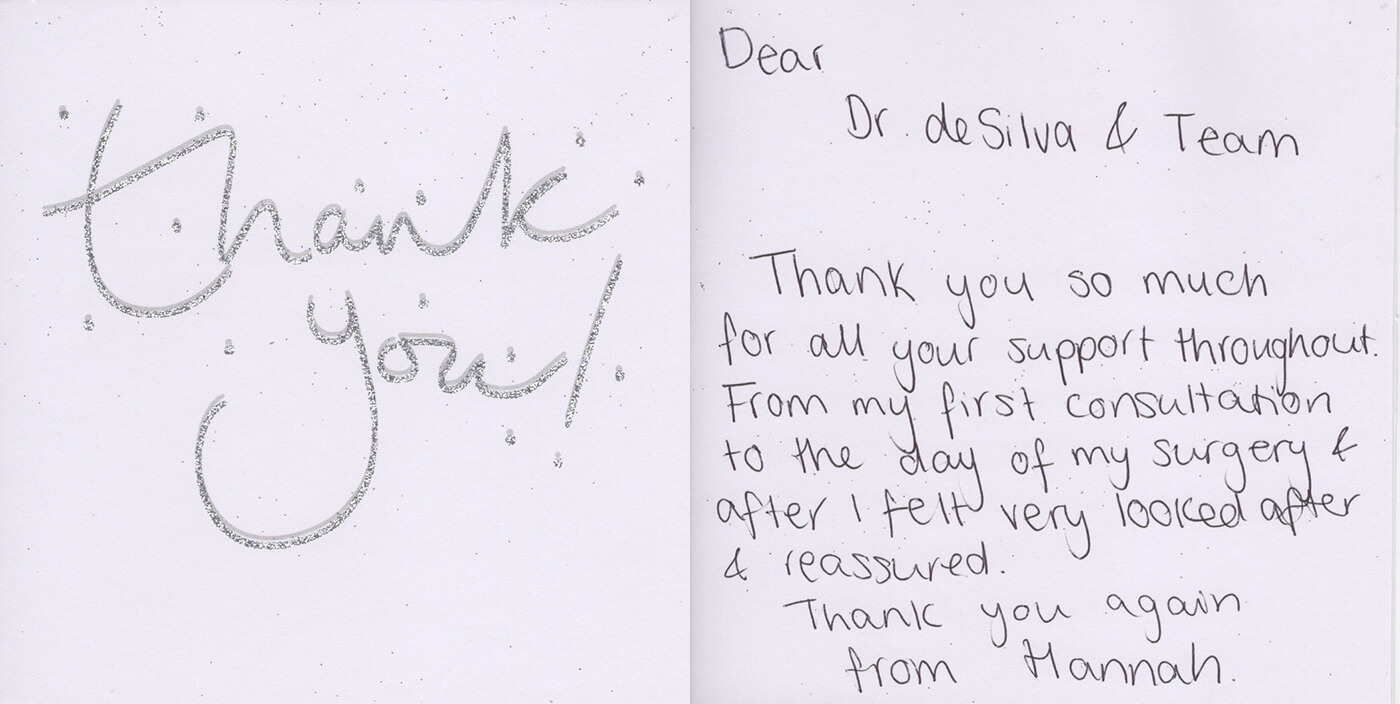 thank
you!
Dear
Dr. de Silva & Team
Thank you so much
for all your support throughout.
From my first consultation
to the day of my surgery &
after I felt very looked after
& reassured.
Thank you again
from Hannah.